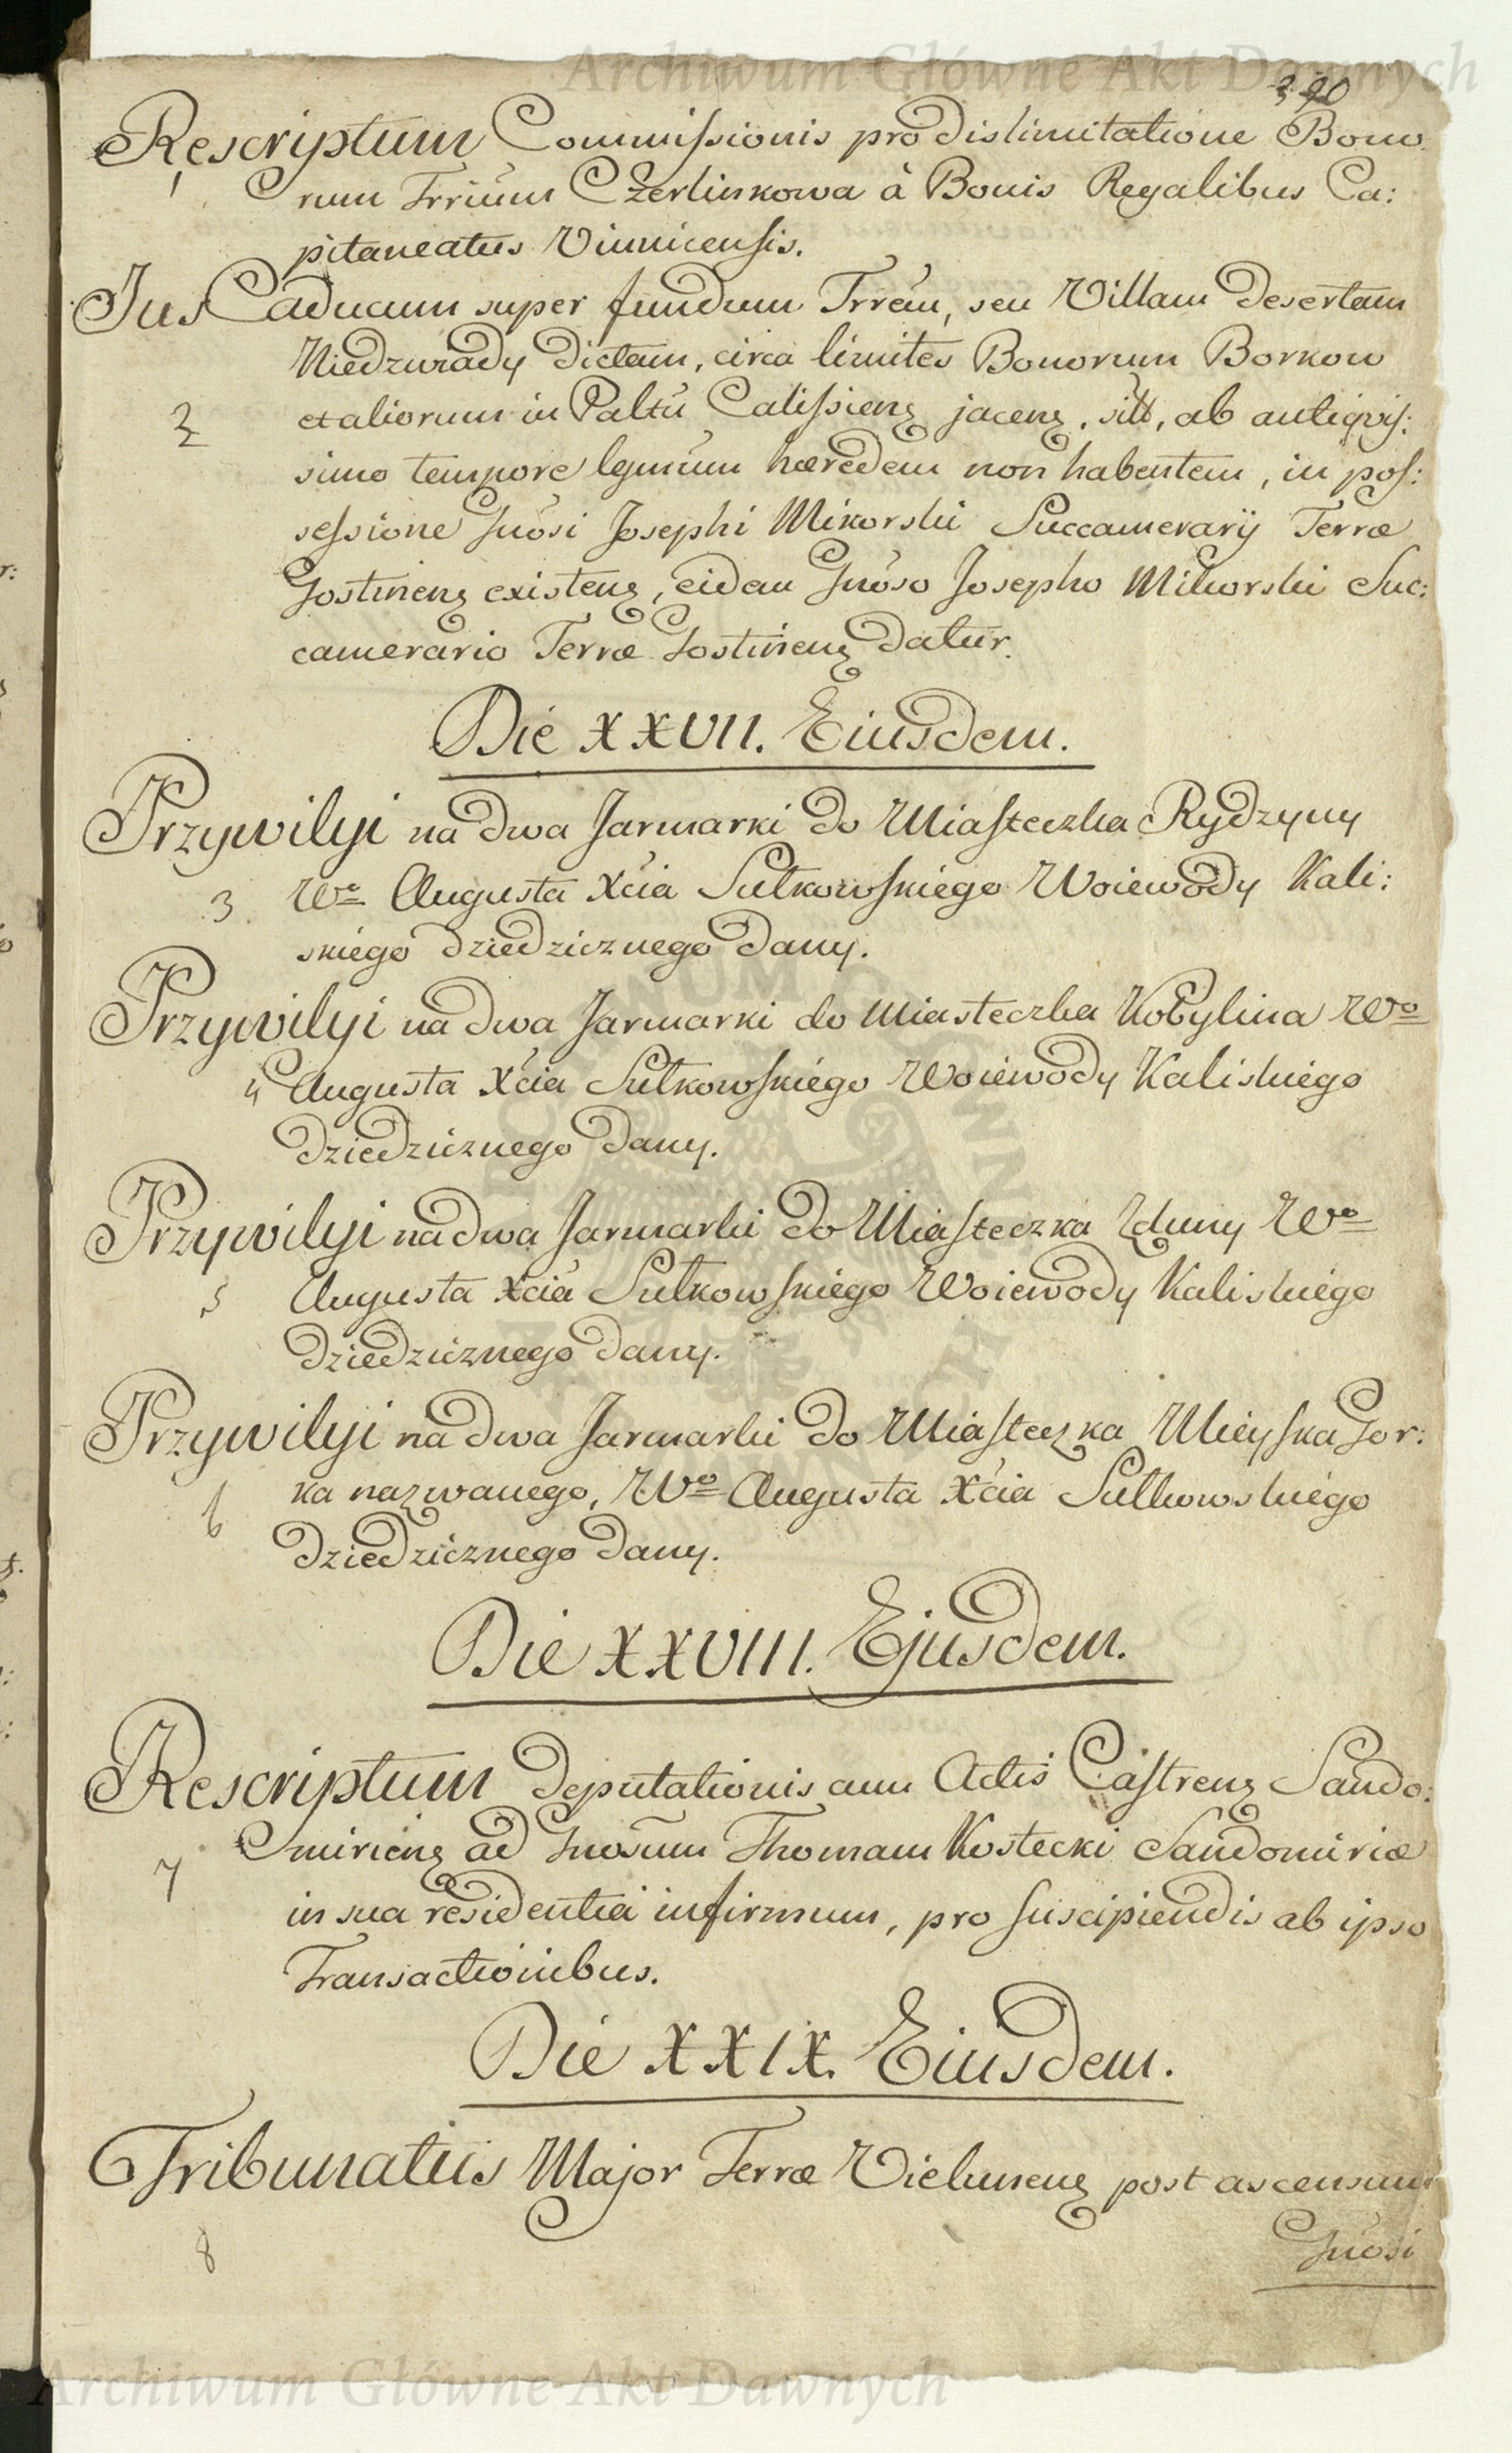 Archiwum Główne Akt Dawnych
390
Rescriptum Commissionis pro Dislimitatione Bono
1 rum Trrium Czerlinkowa à Bonis Regalibus Ca:
pitaneatus Vinnicensis.
Jus Caducum super fundum Trrem, seu Villam Desertam
Niedzwiady Dictam, circa limites Bonorum Borkow
2 et aliorum in Paltu Calissien jacen, sitt, ab antiqvis:
simo tempore lgmum hæredem non habentem, in pos:
sessione Gnosi Josephi Mikorski Succamerarij Terræ
Gostinen existen, eidem Gnoso Josepho Mikorski Suc:
camerario Terræ Gostinen Datur.
Die XXVII. Eiusdem.
Przywiley na dwa Jarmarki do Miasteczka Rydzyny
3 Wo Augusta Xcia Sułkowskiego Woiewody Kali:
skiego dziedzicznego dany.
Przywiley na dwa Jarmarki do Miasteczka Kobylina Wo
4 Augusta Xcia Sułkowskiego Woiewody Kaliskiego
dziedzicznego dany.
Przywiley na dwa Jarmarki do Miasteczka Zduny Wo
5 Augusta Xcia Sułkowskiego Woiewody Kaliskiego
dziedzicznego dany.
Przywiley na dwa Jarmarki do Miasteczka Mieyska Gor:
6 ka nazwanego, Wo Augusta Xcia Sulkowskiego
dziedzicznego dany.
Die XXVIII. Ejusdem.
Rescriptum Deputationis cum Actis Castren Sando:
7 mirien ad Gnosum Thomam Kostecki Sandomiriæ
in sua residentia infirmum, pro suscipiendis ab ipso
Transactionibus.
Die XXIX. Eiusdem.
Tribunatus Major Terræ Vielunen post ascensum
8
Gnosi
Archiwum Główne Akt Dawnych